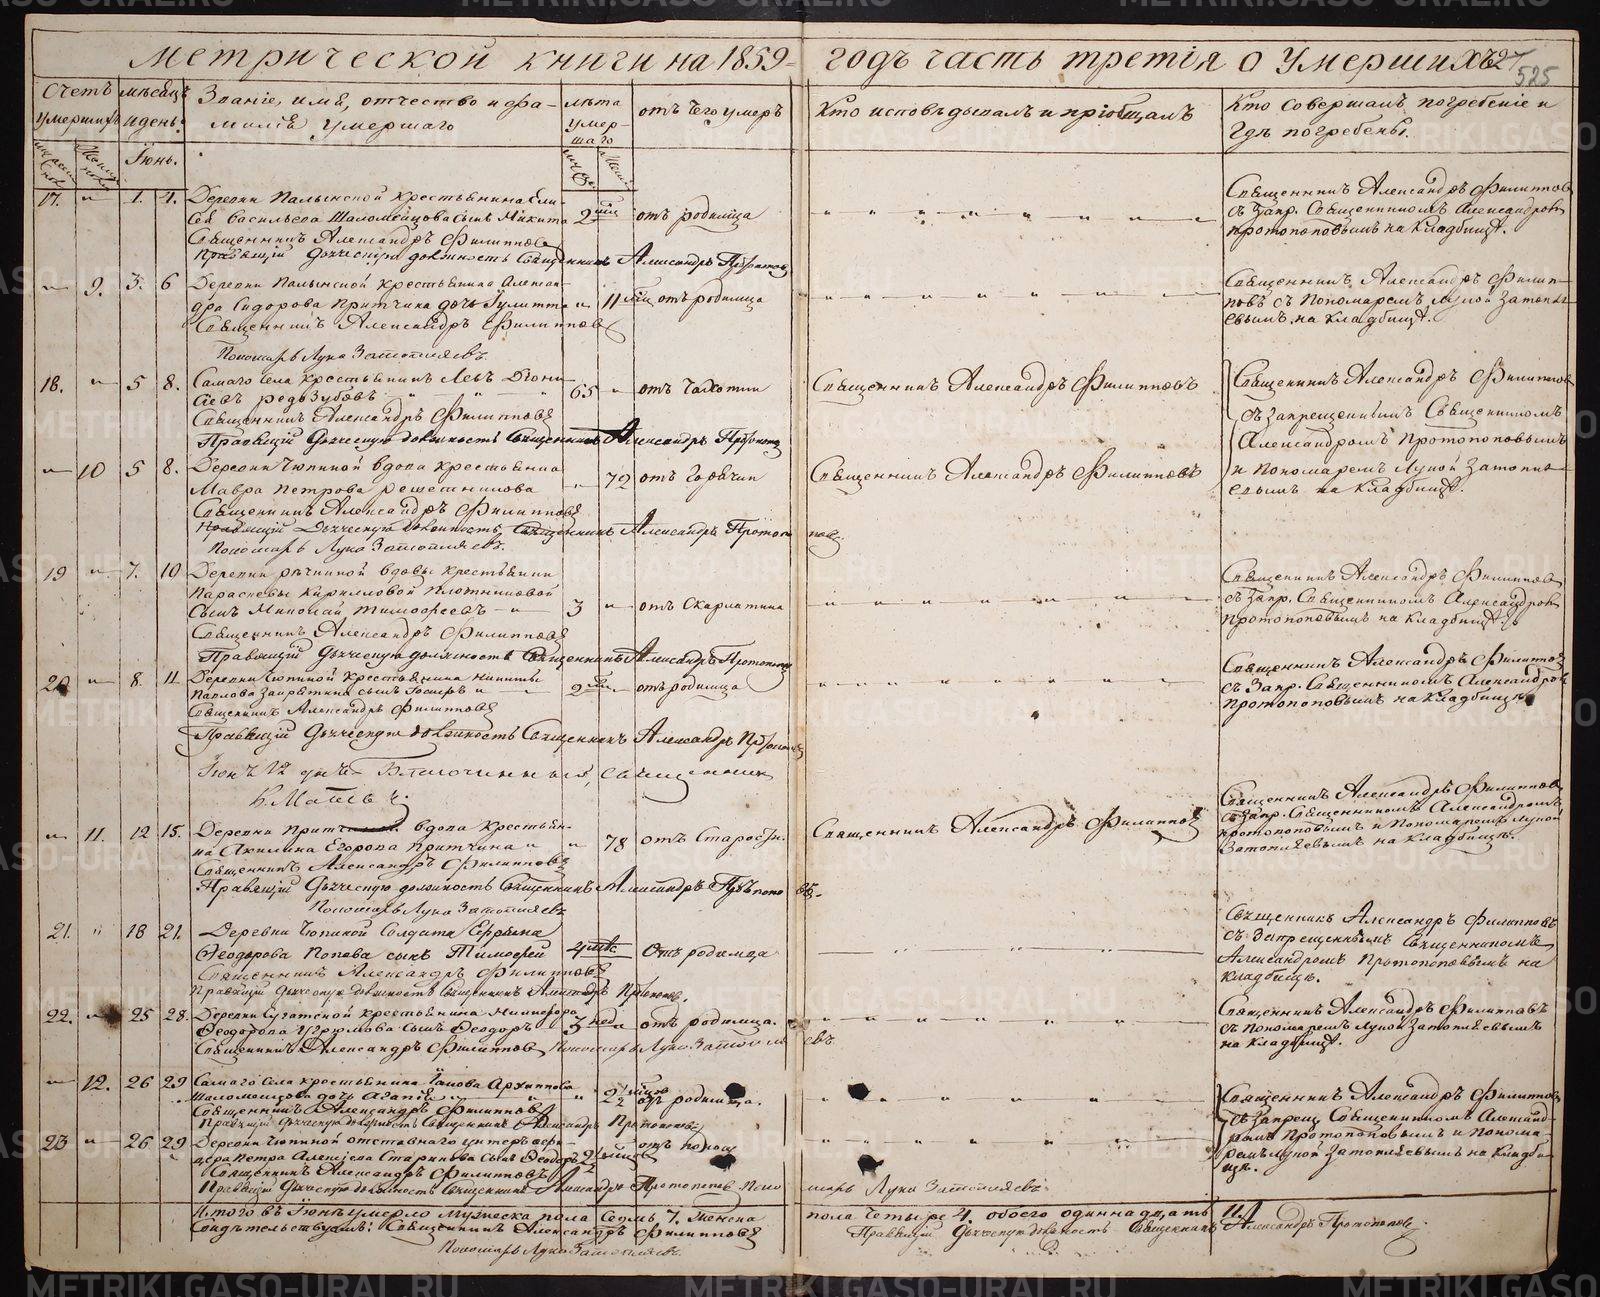 метрической книги на 1859 годъ часть третія о умершихъ
525
Счетъ умершихъ
мѣсяцъ и день.
Званіе, имя, отчество и фамилія умершаго
лѣта умершаго
отъ чего умеръ
Кто исповѣдывалъ и пріобщалъ
Кто совершалъ погребеніе и
гдѣ погребены.
Іюнь.
17. " 1. 4. Деревни Палкинской крестьянина Ели-
сея Васильева сынъ Никита 2 отъ родимца
Священникъ Александръ Филипповъ
съ Запр. Священникомъ Александромъ
Протопоповымъ на кладбищѣ.
Священникъ Александръ Филипповъ
Правящій дьяческую должность Священникъ Александръ Протопоповъ
" 9. 3. 6 Деревни крестьянина Алексан-
дра Сидорова Притчина дочь Іулитта " 11 отъ родимца
Священникъ Александръ Филип-
повъ съ Пономаремъ Лукой Затопля-
евымъ на кладбищѣ.
Священникъ Александръ Филипповъ
Пономарь Лука Затопляевъ.
18. " 5 8. Самаго села крестьянинъ Левъ Діони-
сіевъ Редозубовъ 65 " отъ чахотки
Священникъ Александръ Филипповъ
Священникъ Александръ Филипповъ
съ запрещеннымъ Священникомъ
Александромъ Протопоповымъ
и Пономаремъ Лукой Затопля-
евымъ на кладбищѣ.
Священникъ Александръ Филипповъ
Правящій дьяческую должность Священникъ Александръ Протопоповъ
" 10 5 8. Деревни Чюпиной вдова крестьянка
Мавра Петрова Решетникова " 72 отъ горячки
Священникъ Александръ Филипповъ
Священникъ Александръ Филипповъ
Правящій дьяческую должность Священникъ Александръ Протопоповъ
Пономарь Лука Затопляевъ.
19 " 7. 10 Деревни вдовы крестьянки
Парасковьи Кирилловой Плотниковой
сынъ Николай Тимофеевъ 3 " отъ скарлатина
Священникъ Александръ Филипповъ
съ Запр. Священникомъ Александромъ
Протопоповымъ на кладбищѣ
Священникъ Александръ Филипповъ
Правящій дьяческую должность Священникъ Александръ Протопоповъ
20 " 8. 11 Деревни Чюпиной крестьянина Никиты
Павлова сынъ 2 отъ родимца
Священникъ Александръ Филипповъ
съ Запр. Священникомъ Александромъ
Протопоповымъ на кладбищѣ
Священникъ Александръ Филипповъ
Правящій дьяческую должность Священникъ Александръ Протопоповъ
Іюня 12 дня Благочинный, священникъ
" 11. 12 15. Деревни вдова крестьян-
ка Акилина Егорова Притчина " " 78 отъ старости.
Священникъ Александръ Филипповъ
Священникъ Александръ Филипповъ
съ Запр. Священникомъ Александромъ
Протопоповымъ и Пономаремъ Лукой
Затопляевымъ на кладбищѣ.
Священникъ Александръ Филипповъ
Правящій дьяческую должность Священникъ Александръ Протопоповъ
Пономарь Лука Затопляевъ
21. " 18 21. Деревни Чюпиной солдата
Феодорова Попова сынъ Тимофей 4 отъ родимца
Священникъ Александръ Филипповъ
съ запрещеннымъ Священникомъ
Александромъ Протопоповымъ на
кладбищѣ.
Священникъ Александръ Филипповъ
Правящій дьяческую должность Священникъ Александръ Протопоповъ.
22. " 25 28. Деревни крестьянина Никифора
Феодорова Угрюмова сынъ Феодоръ 3 нед. отъ родимца.
Священникъ Александръ Филипповъ
съ Пономаремъ Лукой Затопляевымъ
на кладбищѣ.
Священникъ Александръ Филипповъ Пономарь Лука Затопляевъ
" 12. 26 29 Самаго села крестьянина Архиппова
дочь Агапія " " 2 отъ родимца.
Священникъ Александръ Филипповъ
съ Запрещ. Священникомъ Александ-
ромъ Протопоповымъ и Понома-
ремъ Лукой Затопляевымъ на кладби-
щѣ.
Священникъ Александръ Филипповъ
Правящій дьяческую должность Священникъ Александръ Протопоповъ
23 " 26 29 Деревни Чюпиной отставнаго унтеръ офи-
цера Петра Алексіева Старикова сынъ Феодоръ 2 отъ поноса
Священникъ Александръ Филипповъ
Правящій дьяческую должность Священникъ Александръ Протопоповъ Пономарь Лука Затопляевъ
Итого въ Іюнѣ умерло мужеска пола Семь 7. женска пола четыре 4. обоего одиннадцать 11.
Свидѣтельствуемъ: Священникъ Александръ Филипповъ Правящій дьяческую должность Священникъ Александръ Протопоповъ.
Пономарь Лука Затопляевъ
METRIKI.GASO-URAL.RU